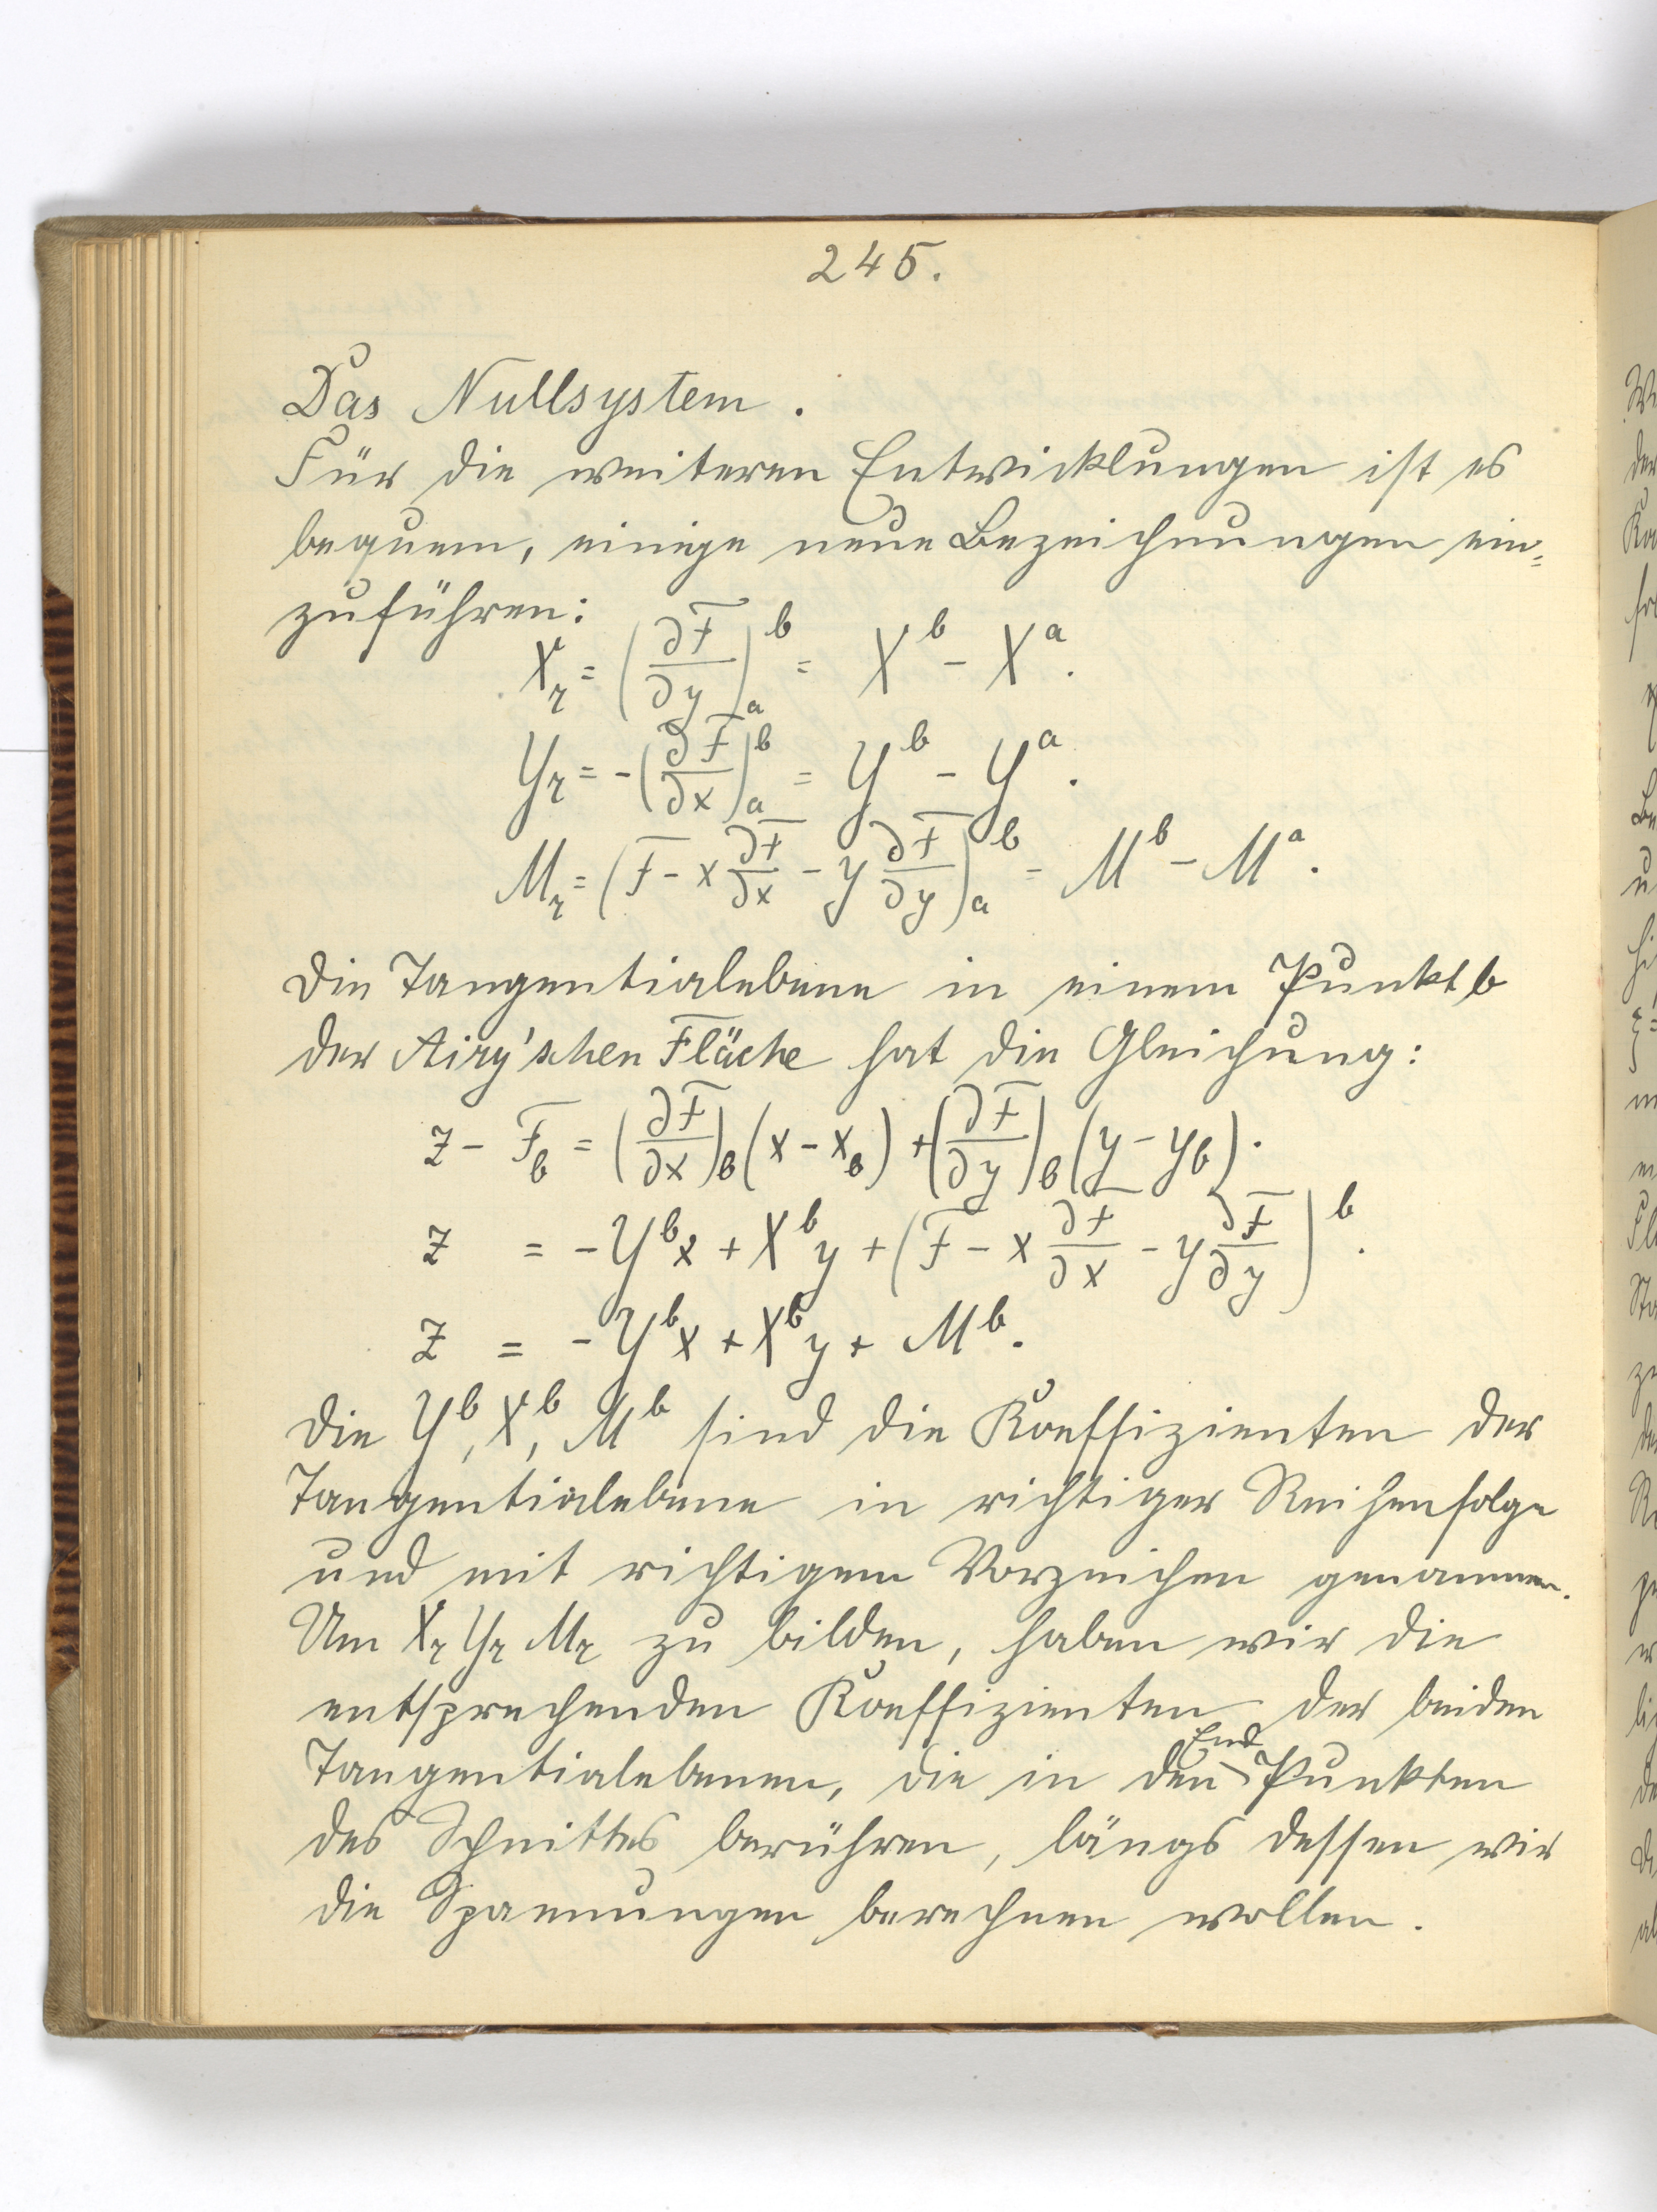 245.
Das Nullsystem.
Für die weiteren Entwicklungen ist es
bequem, einige neue Bezeichnungen ein=
zuführen:
X_r = (∂F/∂y)_a^b = X^b - X^a.
Y_r = -(∂F/∂x)_a^b = Y^b - Y^a.
M_r = (F - x ∂F/∂x - y ∂F/∂y)_a^b = M^b - M^a.
Die Tangentialebene in einem Punkt b
der Airy'schen Fläche hat die Gleichung:
z - F_b = (∂F/∂x)_b (x - x_b) + (∂F/∂y)_b (y - y_b).
z = -Y^b x + X^b y + (F - x ∂F/∂x - y ∂F/∂y)^b.
z = -Y^b x + X^b y + M^b.
Die Y^b, X^b, M^b sind die Koeffizienten der
Tangentialebene in richtiger Reihenfolge
und mit richtigem Vorzeichen genommen.
Um X_r Y_r M_r zu bilden, haben wir die
entsprechenden Koeffizienten der beiden
Tangentialebenen, die in den End Punkten
des Schnittes berühren, längs dessen wir
die Spannungen berechnen wollen.